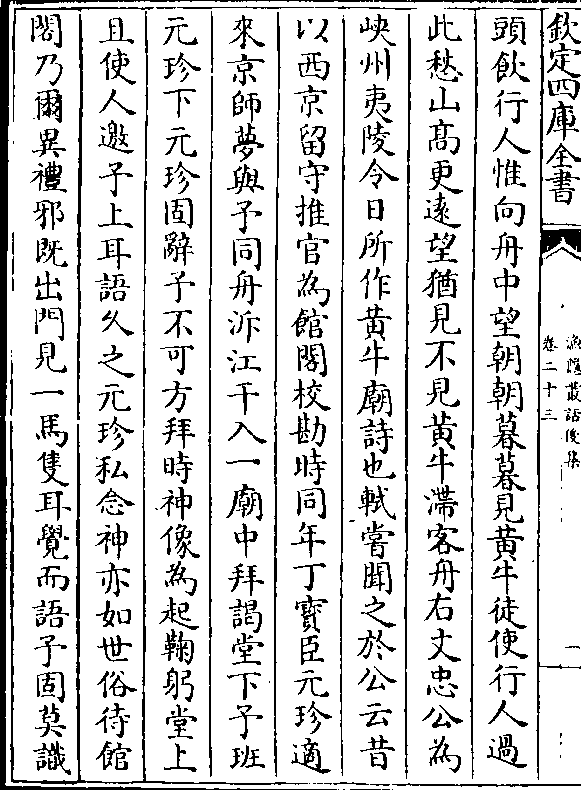 欽定四庫全書
漁隱叢話後集
卷二十三
一
頭飲行人惟向舟中望朝朝暮暮見黃牛徒使行人過
此愁山髙更逺望猶見不見黃牛滯客舟右文忠公為
峽州夷陵令日所作黃牛廟詩也軾嘗聞之於公云昔
以西京留守推官為館閣校勘時同年丁寶臣元珍適
來京師夢與予同舟泝江干入一廟中拜謁堂下予班
元珍下元珍固辭予不可方拜時神像為起鞠躬堂上
且使人邀予上耳語久之元珍私念神亦如世俗待館
閣乃爾異禮邪既出門見一馬隻耳覺而語予固莫識